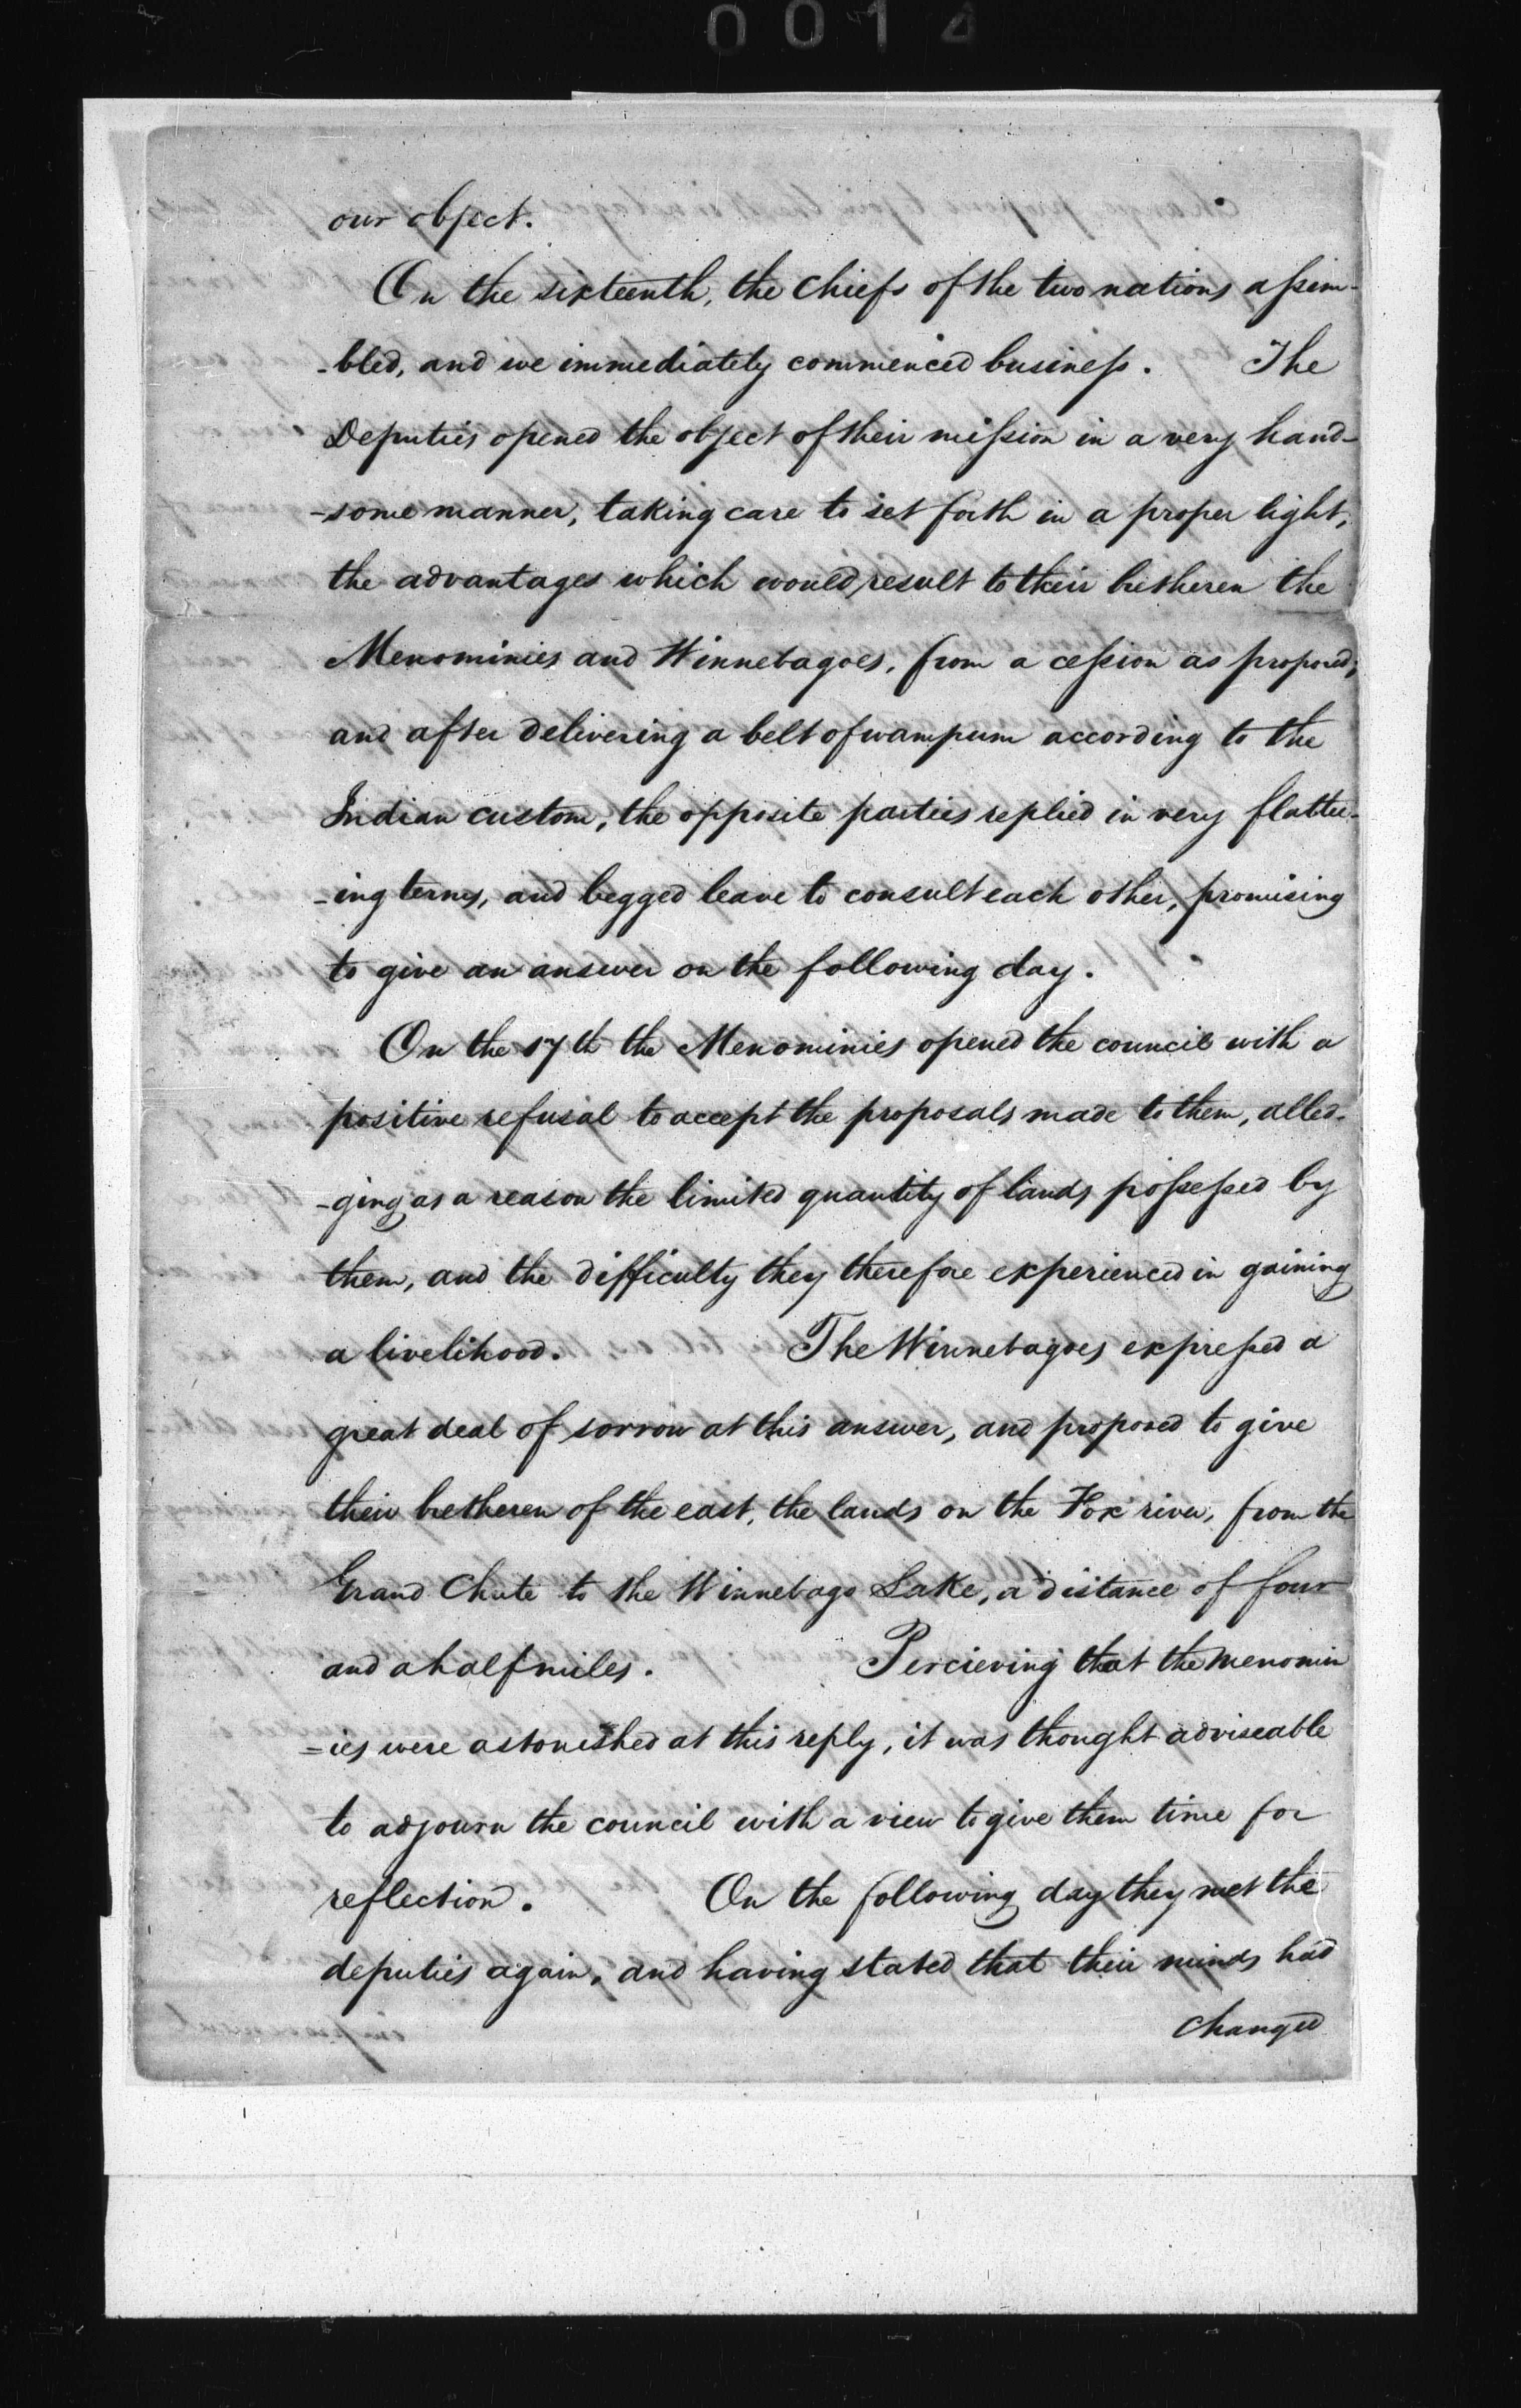 0014
our object.
On the sixteenth, the Chiefs of the two nations assem-
-bled, and we immediately commenced business. The
Deputies opened the object of their mission in a very hand-
-some manner, taking care to set forth in a proper light,
the advantages which would result to their betheren the
Menominies and Winnebagoes, from a cession as proposed;
and after delivering a belt of wampum according to the
Indian custom, the opposite parties replied in very flatter-
-ing terms, and begged leave to consult each other, promising
to give an answer on the following day.
On the 17th the Menominies opened the council with a
positive refusal to accept the proposals made to them, alled-
-ging as a reason the limited quantity of lands possessed by
them, and the difficulty they therefore experienced in gaining
a livelihood. The Winnebagoes expressed a
great deal of sorrow at this answer, and proposed to give
their betheren of the east, the lands on the Fox river, from the
Grand Chute to the Winnebago Lake, a distance of four
and a half miles. Percieving that the menomin
=ies were astonished at this reply, it was thought adviseable
to adjourn the council with a view to give them time for
reflection. On the following day they met the
deputies again, and having stated that their minds had
changed